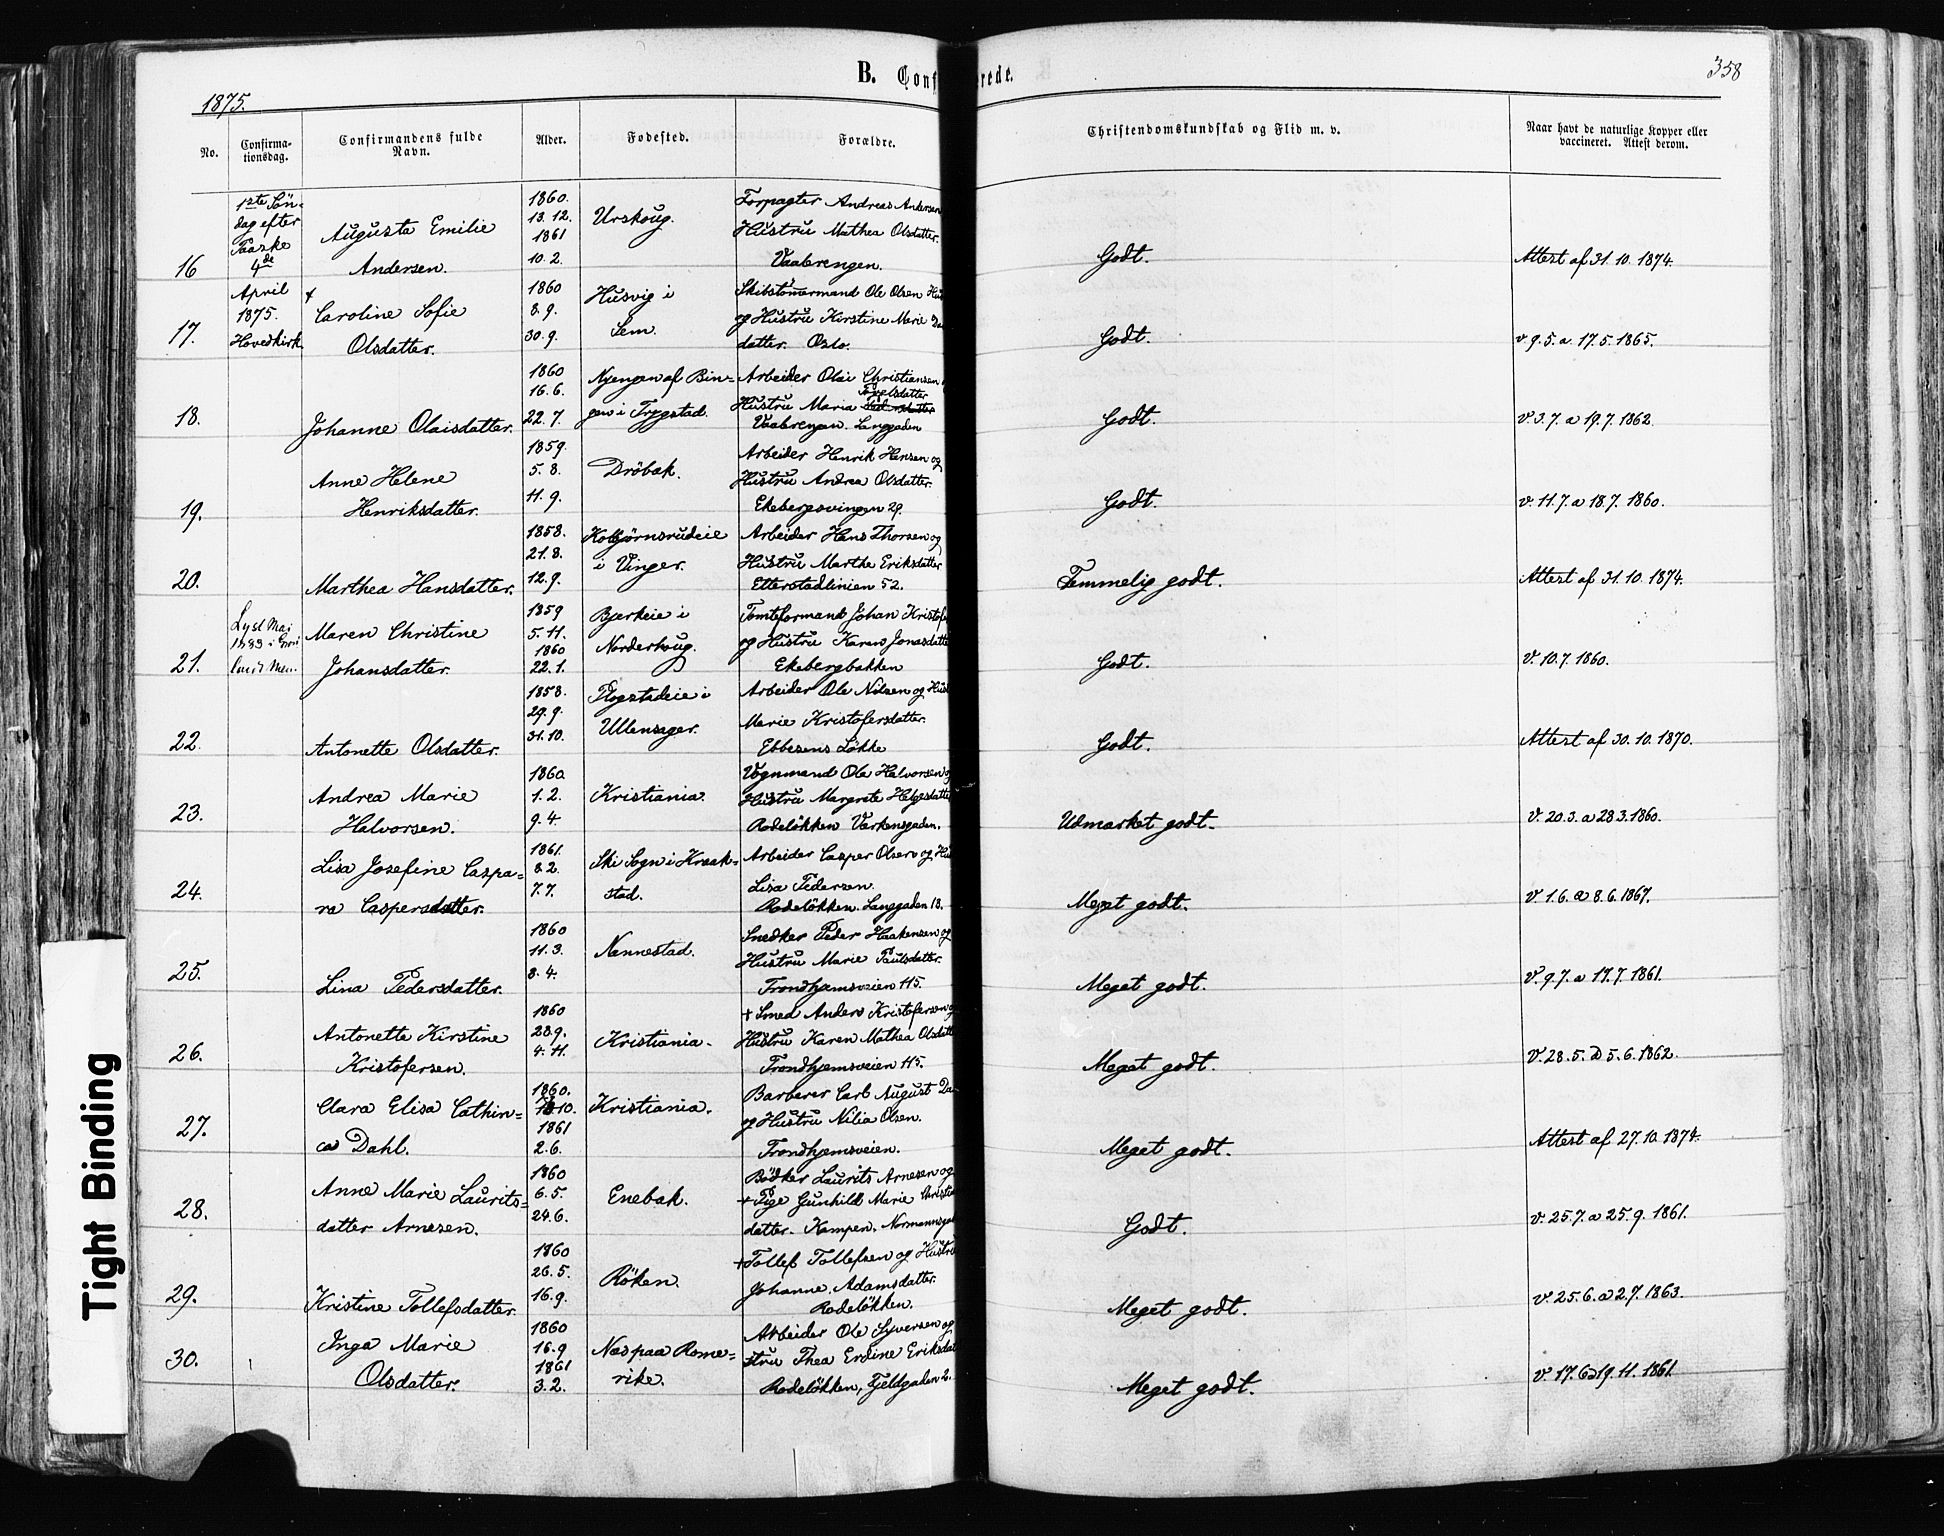 B. Conf
rede.
358
1875.
No.
Confirma-
tionsdag.
Confirmandens fulde
Navn.
Alder.
Fødested.
Forældre.
Christendomskundskab og Flid m. v.
Naar havt de naturlige Kopper eller
vaccineret. Attest derom.
1ste Sön-
dag efter
Paaske
4de
April
1875.
Hovedkirk.
16
Augusta Emilie
Andersen.
1860.
13.12.
1861
10.2.
Urskoug.
Forpagter Andreas Andersen
Hustru Mathea Olsdatter.
Vaalerengen.
Godt.
Attest af 31.10.1874.
17.
Caroline Sofie
Olsdatter.
1860
8.9.
30.9.
Husvig i
Sem.
Skibstömermand Ole Olsen
og Hustru Kirstine Marie
datter. Oslo.
Godt.
v 9.5. a. 17.5.1865.
18.
Johanne Olaisdatter.
1860
16.6.
22.7.
Nyengen af Bin=
gen i Trygstad.
Arbeider Olai Christiansen
datter
Hustru Maria
Vaalerengen. Langgaden
Godt.
v. 3.7. a 19.7.1862.
19.
Anne Helene
Henriksdatter.
1859.
5.8.
11.9.
Dröbak.
Arbeider Henrik Hansen og
Hustru Andrea Olsdatter.
Ekebergsvingen 29.
Godt.
v. 11.7. a 18.7.1860.
20.
Marthea Hansdatter.
1858.
21.8.
12.9.
Kolbjörnsrudeie
i Vinger.
Arbeider Hans Thorsen og
Hustru Marthe Eriksdatter
Etterstadlinien 52.
Temmelig godt.
Attest af 31.10.1874.
21.
Lyst Mai
Maren Christine
Johansdatter.
1859
5.11.
1860
22.1.
Bjerkeie i
Norderhoug.
Tomteformand Johan Kristof
og Hustru Karen Jonasdatte
Ekebergbakken
Godt.
v. 10.7.1860.
22.
Antonette Olsdatter.
1858.
29.9.
31.10.
Plogstadeie i
Ullensager.
Arbeider Ole Nilsen og Hus
Marie Kristofersdatter.
Ebbesens Lökke
Godt.
Attest af 30.10.1870.
23.
Andrea Marie
Halvorsen.
1860.
1.2.
9.4.
Kristiania.
Vognmand Ole Halvorsen
Hustru Margrete Helgesdatte
Rodelökken Verkensgaden.
Udmærket godt.
v. 20.3. a 28.3.1860.
24.
Lisa Josefine Caspa=
ra Caspersdatter.
1861.
8.2.
7.7.
Ski Sogn i Kraak=
stad.
Arbeider Casper Olsen og Hu
Lisa Pedersen.
Rodelökken. Langgaden 18.
Meget godt.
v. 1.6. a 8.6.1867.
25.
Lina Pedersdatter.
1860
11.3.
8.4.
Nannestad.
Snedker Peder Haakensen og
Hustru Marie Paulsdatter.
Trondhjemsveien 115.
Meget godt.
v. 9.7. a 17.7.1861.
26.
Antonette Kirstine
Kristofersen.
1860
28.9.
4.11.
Kristiania.
+ Smed Anders Kristofersen
Hustru Karen Mathea Olsdatt
Trondhjemsveien 115.
Meget godt.
v. 28.5. a 5.6.1862.
27.
Clara Elisa Cathin=
ca Dahl.
1860.
10.
1861
2.6.
Kristiania.
Barberer Carl August Da
og Hustru Nilia Olsen.
Trondhjemsveien.
Meget godt.
Attest af 27.10.1874.
28.
Anne Marie Laurits=
datter Arnesen.
1860
6.5.
24.6.
Enebak.
Bödker Laurits Arnesen og
+ Pige Gunhild Marie Christia
datter. Kampen. Normannsga
Godt.
v. 25.7. a 25.9.1861.
29.
Kristine Tollefsdatter.
1860
26.5.
16.9.
Röken.
+ Tollef Tollefsen og Hustru
Johanne Adamsdatter.
Rodelökken.
Meget godt.
v. 25.6. a 2.7.1863.
30.
Inga Marie
Olsdatter.
1860
16.9
1861
3.2.
Næs paa Rome=
rike.
Arbeider Ole Syversen og
stru Thea Erdine Eriksdat
Rodelökken, Fjeldgaden 2.
Meget godt.
v. 17.6 a 19.11.1861.
Tight Binding